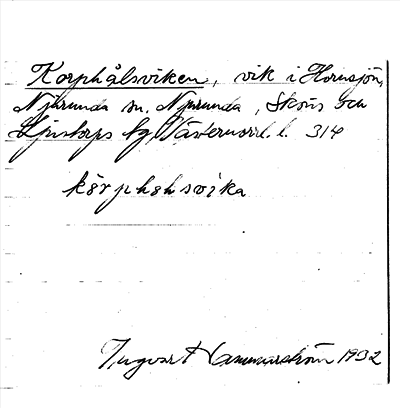 Korphålsviken, vik i Hornsjön,
Njurunda sn. Njurunda, Sköns och
Ljustorps tg, Västernorrl. l. 314
kørphølsvika
Ingvar Hammarström 1932